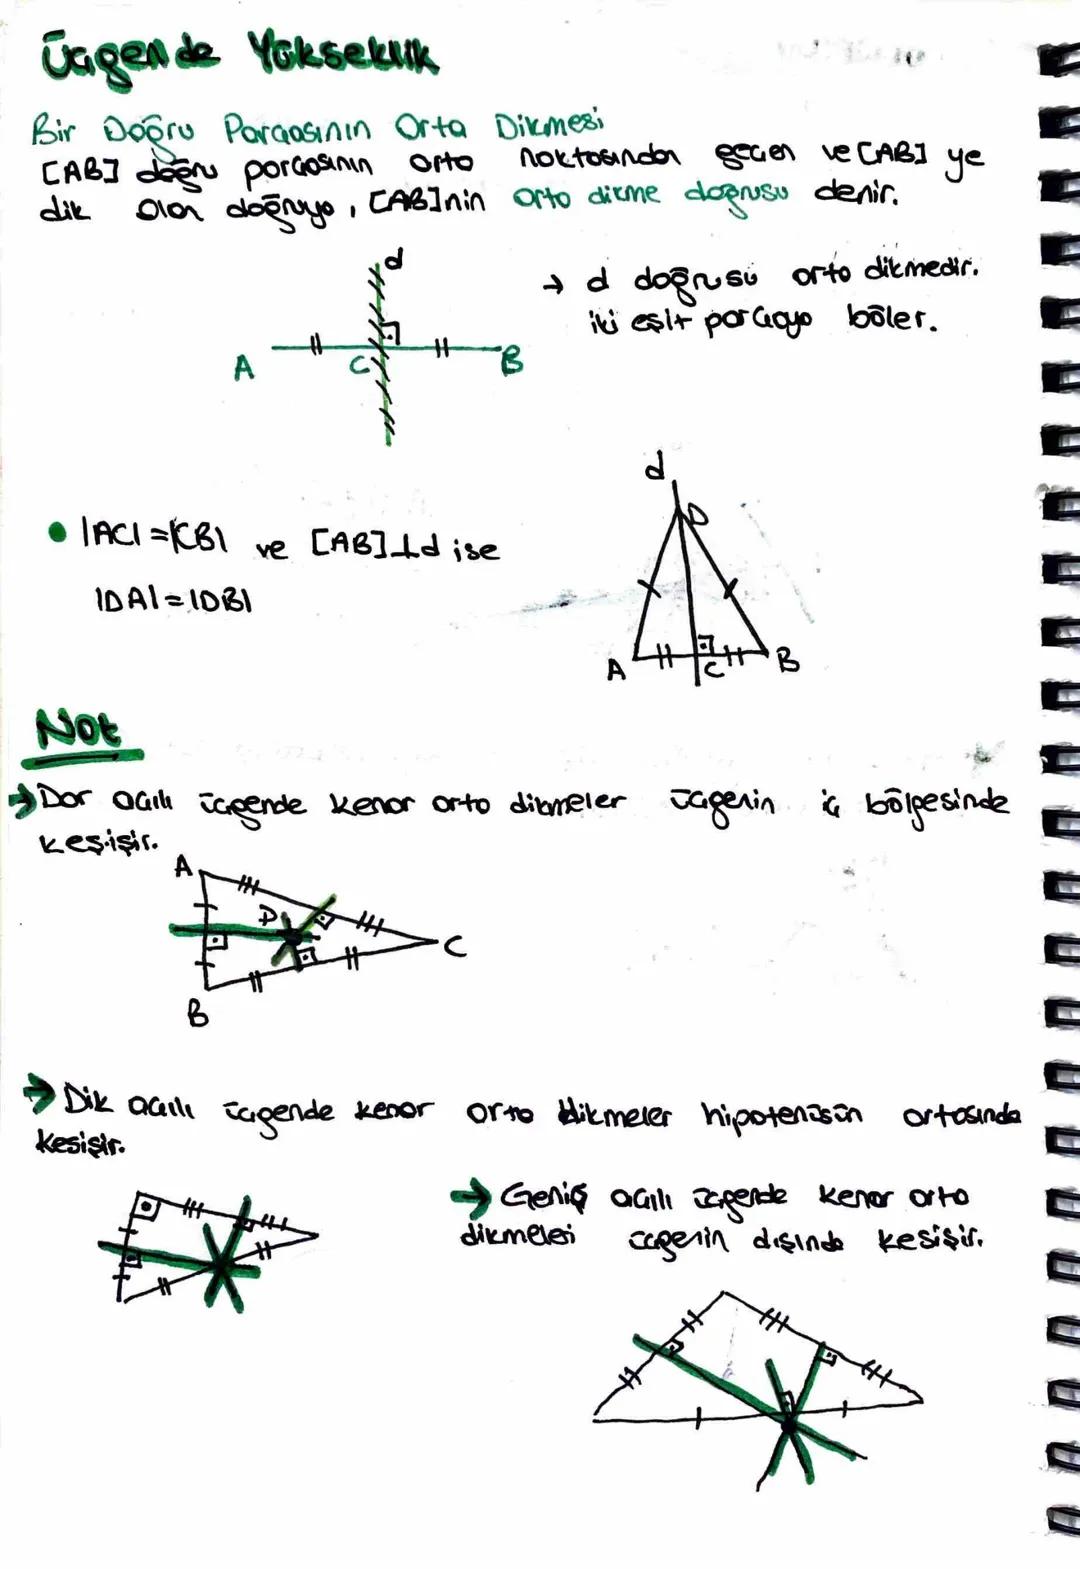 Üçgende Yükseklik
Bir Doğru Parçasının Orta Dikmesi
[AB] doğru parçasının orta noktasından geçen ve [AB] ye
dik olan doğruya, [AB]nin orta dikme doğrusu denir.
d
→ d doğrusu orta dikmedir.
iki eşit parçaya böler.
A C B
d
D
• |AC|=|CB| ve [AB]⊥d ise
|DA|=|DB|
A C B
Not
→ Dar açılı üçgende kenar orta dikmeler üçgenin iç bölgesinde
kesişir.
A
D
C
B
→ Dik açılı üçgende kenar orta dikmeler hipotenüsün ortasında
kesişir.
→ Geniş açılı üçgende kenar orta
dikmeleri üçgenin dışında kesişir.